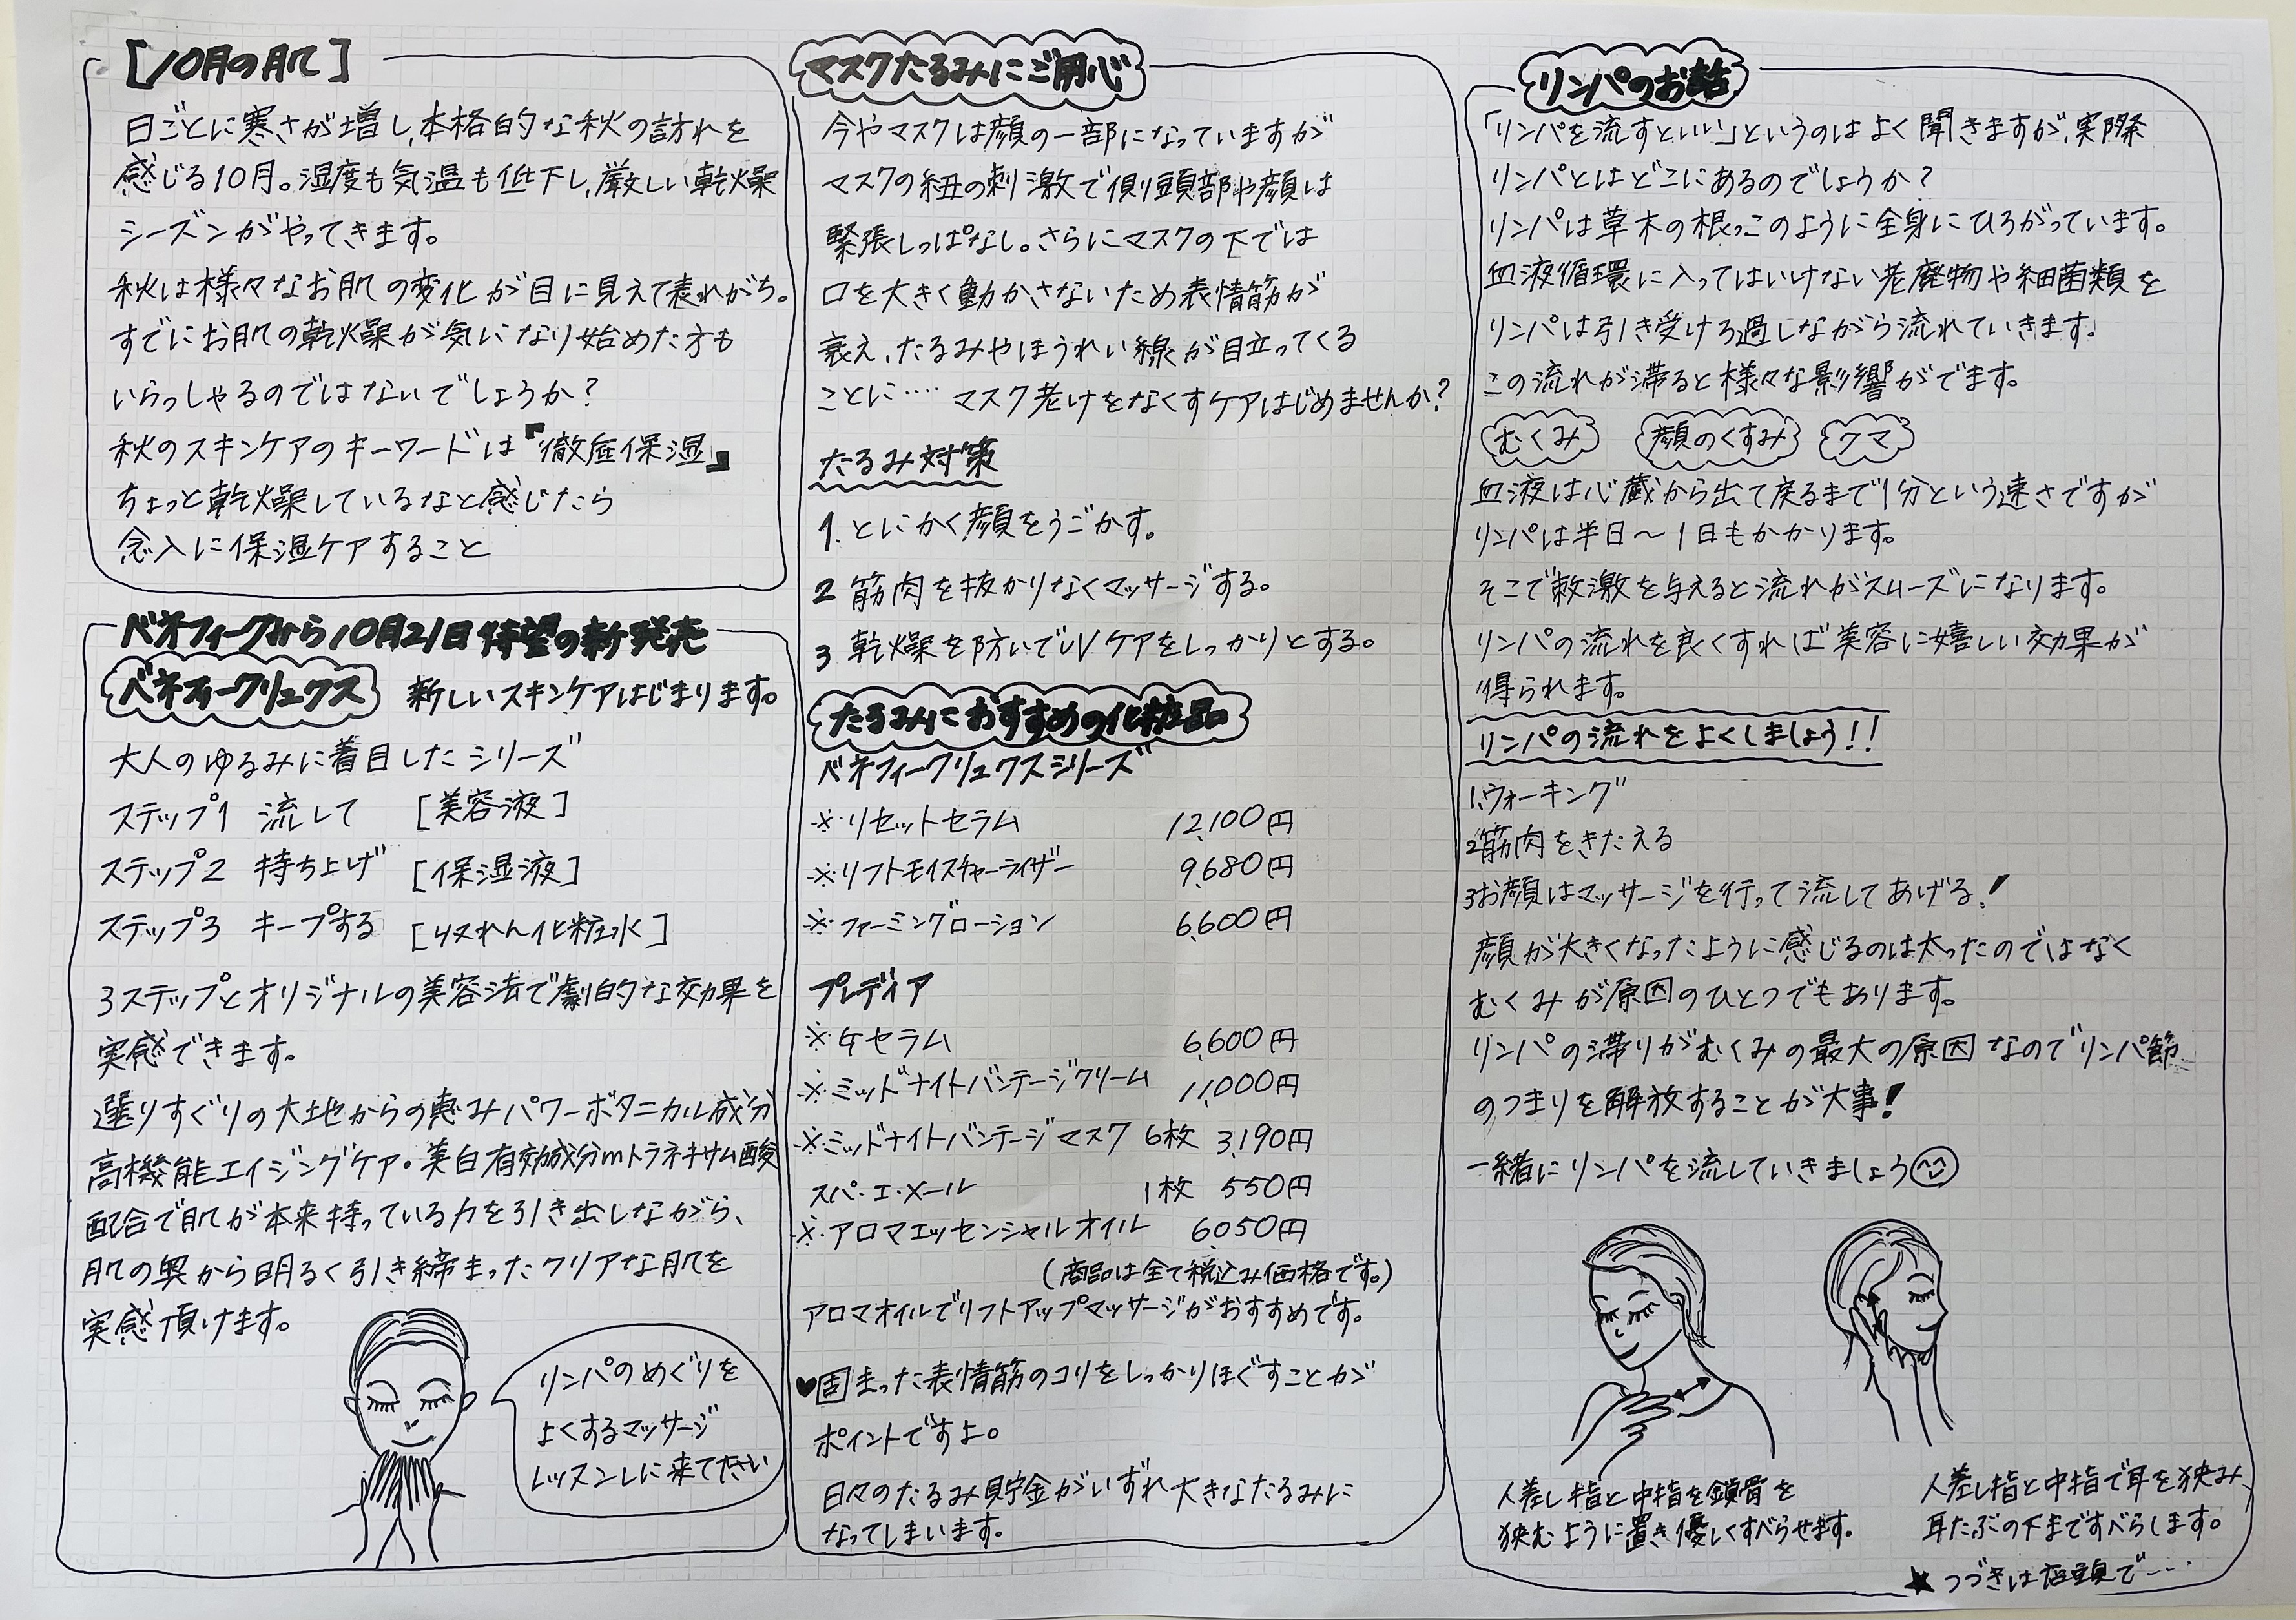 [10月の肌]
日ごとに寒さが増し、本格的な秋の訪れを
感じる10月。湿度も気温も低下し、厳しい乾燥
シーズンがやってきます。
秋は様々なお肌の変化が目に見えて表れがち。
すでにお肌の乾燥が気になり始めた方も
いらっしゃるのではないでしょうか?
秋のスキンケアのキーワードは『徹底保湿』
ちょっと乾燥しているなと感じたら
念入に保湿ケアすること
ベネフィークから10月21日待望の新発売
ベネフィークリュクス 新しいスキンケアはじまります。
大人のゆるみに着目したシリーズ
ステップ1 流して [美容液]
ステップ2 持ち上げ [保湿液]
ステップ3 キープする [収れん化粧水]
3ステップとオリジナルの美容法で劇的な効果を
実感できます。
選りすぐりの大地からの恵みパワーボタニカル成分
高機能エイジングケア・美白有効成分mトラネキサム酸
配合で肌が本来持っている力を引き出しながら、
肌の奥から明るく引き締まったクリアな肌を
実感頂けます。
リンパのめぐりを
よくするマッサージ
レッスンしに来て下さい
マスクたるみにご用心
今やマスクは顔の一部になっていますが
マスクの紐の刺激で側頭部や顔は
緊張しっぱなし。さらにマスクの下では
口を大きく動かさないため表情筋が
衰え、たるみやほうれい線が目立ってくる
ことに…… マスク老けをなくすケアはじめませんか?
たるみ対策
1. とにかく顔をうごかす。
2 筋肉を抜かりなくマッサージする。
3 乾燥を防いでUVケアをしっかりとする。
たるみにおすすめの化粧品
ベネフィークリュクスシリーズ
※リセットセラム 12,100円
※リフトモイスチャーライザー 9,680円
※ファーミングローション 6,600円
プレディア
※ケセラム 6,600円
※ミッドナイトバンテージクリーム 11,000円
※ミッドナイトバンテージマスク 6枚 3,190円
スパ・エ・メール 1枚 550円
※アロマエッセンシャルオイル 6,050円
(商品は全て税込み価格です。)
アロマオイルでリフトアップマッサージがおすすめです。
♥固まった表情筋のコリをしっかりほぐすことが
ポイントですよ。
日々のたるみ貯金がいずれ大きなたるみに
なってしまいます。
リンパのお話
「リンパを流すといい」というのはよく聞きますが、実際
リンパとはどこにあるのでしょうか?
リンパは草木の根っこのように全身にひろがっています。
血液循環に入ってはいけない老廃物や細菌類を
リンパは引き受けろ過しながら流れていきます。
この流れが滞ると様々な影響がでます。
むくみ 顔のくすみ クマ
血液は心蔵から出て戻るまで1分という速さですが
リンパは半日〜1日もかかります。
そこで刺激を与えると流れがスムーズになります。
リンパの流れを良くすれば美容に嬉しい効果が
得られます。
リンパの流れをよくしましょう!!
1.ウォーキング
2筋肉をきたえる
3お顔はマッサージを行って流してあげる!
顔が大きくなったように感じるのは太ったのではなく
むくみが原因のひとつでもあります。
リンパの滞りがむくみの最大の原因なのでリンパ節
のつまりを解放することが大事!
一緒にリンパを流していきましょう
人差し指と中指を鎖骨を
狭むように置き優しくすべらせます。
人差し指と中指で耳を狭み、
耳たぶの下まですべらします。
★つづきは店頭で……